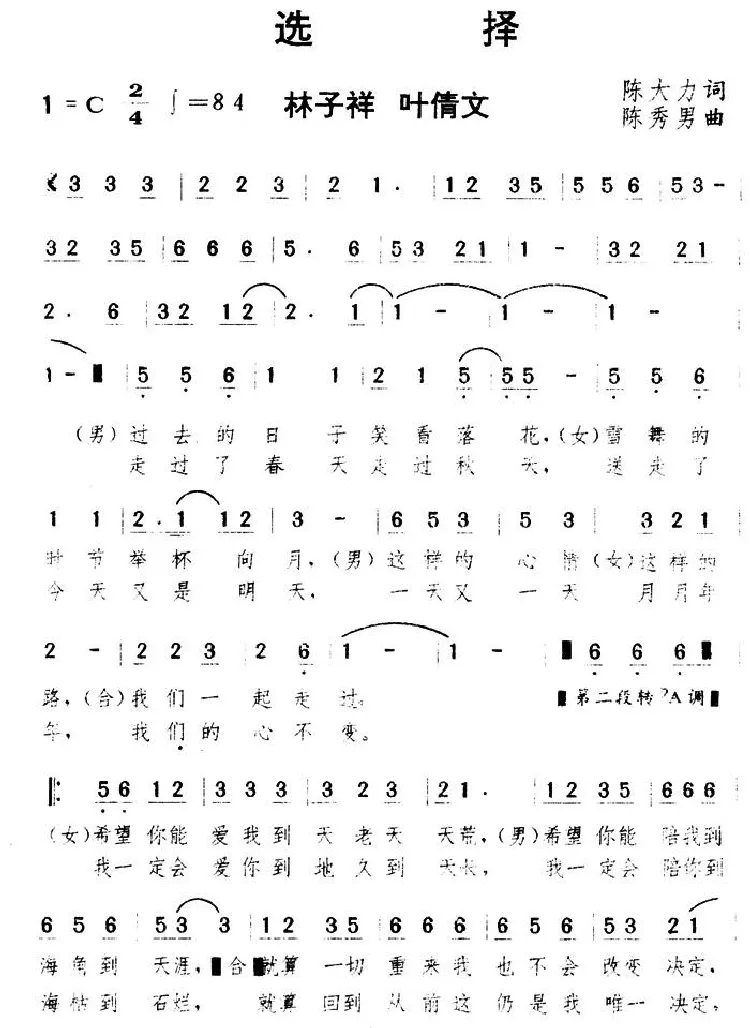 选 择
1=C 2/4 ♩=84 林子祥 叶倩文 陈大力词
陈秀男曲
3 3 3 | 2 2 3 | 2 1 . | 12 35 | 5 5 6 | 53 -
32 35 | 6 6 6 | 5 . 6 | 53 21 | 1 - | 32 21
2 . 6 | 32 12 | 2 . 1 | 1 - | 1 - | 1 -
1 - | 5 5 6 | 1 1 | 2 1 5 | 55 - | 5 5 6
(男)过去的日子笑看落花,(女)雪舞的
走过了春天走过秋天,送走了
1 1 | 2 . 1 12 | 3 - | 6 5 3 | 5 3 | 3 2 1
时节举杯向月,(男)这样的心情(女)这样的
今天又是明天,一天又一天月月年
2 - | 2 2 3 | 2 6 | 1 - | 1 - | 6 6 6
路,(合)我们一起走过。 第二段转 A调
年,我们的心不变。
56 12 | 3 3 3 | 3 2 3 | 21 . | 12 35 | 666
(女)希望你能爱我到天老天荒,(男)希望你能陪我到
我一定会爱你到地久到天长,我一定会陪你到
6 5 6 | 53 3 | 12 35 | 666 | 6 5 6 | 53 21
海角到天涯,合就算一切重来我也不会改变决定,
海枯到石烂,就算回到从前这仍是我唯一决定,